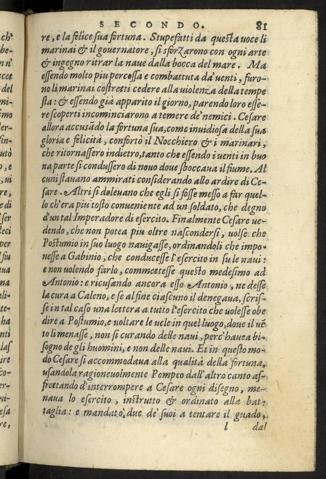 SECONDO. 81
re, e la felice sua fortuna. Stupefatti da questa voce li
marinai & il gouernatore, si sforzarono con ogni arte
& ingegno ritrar la naue dalla bocca del mare. Ma
essendo molto piu percossa e combattuta da'uenti, furo-
no li marinai costretti cedere alla uiolenza della tempe
sta: & essendo già apparito il giorno, parendo loro esse-
re scoperti incominciarono a temere de'nemici. Cesare
allora accusādo la fortuna sua, come inuidiosa della sua
gloria e felicità, confortò il Nocchiero & i marinari,
che ritornassero indietro, tanto che essendo i uenti in buo
na parte si condussero di nouo doue sboccaua il fiume. Al
cuni stauano ammirati considerando allo ardire di Ce-
sare. Altri si doleuano che egli si fosse messo a far quel-
lo ch'era piu tosto conueniente ad un soldato, che degno
d'un tal Imperadore di esercito. Finalmente Cesare ue-
dendo, che non potea piu oltre nascondersi, uolse che
Postumio in suo luogo nauigasse, ordinandoli che impo-
nesse a Gabinio, che conducesse l'esercito in su le naui:
e non uolendo farlo, commettesse questo medesimo ad
Antonio: e ricusando ancora esso Antonio, ne desse
la cura a Caleno, e se al fine ciascuno il denegaua, scris-
se in tal caso una lettera a tutto l'esercito che uolesse obe
dire a Postumio, e uoltare le uele in quel luogo, doue il uē
to li menasse, non si curando delle naui, perc'hauea bi-
sogno de gli huomini, e non delle naui. Et in questo mo-
do Cesare si accommodaua alla qualità della fortuna,
usandola ragioneuolmente. Pompeo dall'altro canto af-
frettando d'interrompere a Cesare ogni disegno, me-
naua lo esercito, instrutto & ordinato alla bat-
taglia: e mandato due de'suoi a tentare il guado,
l dal